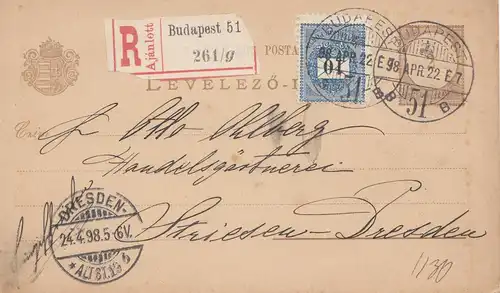 R
Ajánlott
Budapest 51
261/g
POSTA
LEVELEZŐ-
BUDAPEST
98 APR. 22. E
51
B
10
BUDAPEST
98 APR. 22. E. 7
51
B
Otto Ohlberg
Handelsgärtnerei
Striesen-Dresden
DRESDEN-
24.4.98. 5-6V.
ALTST.19
1130